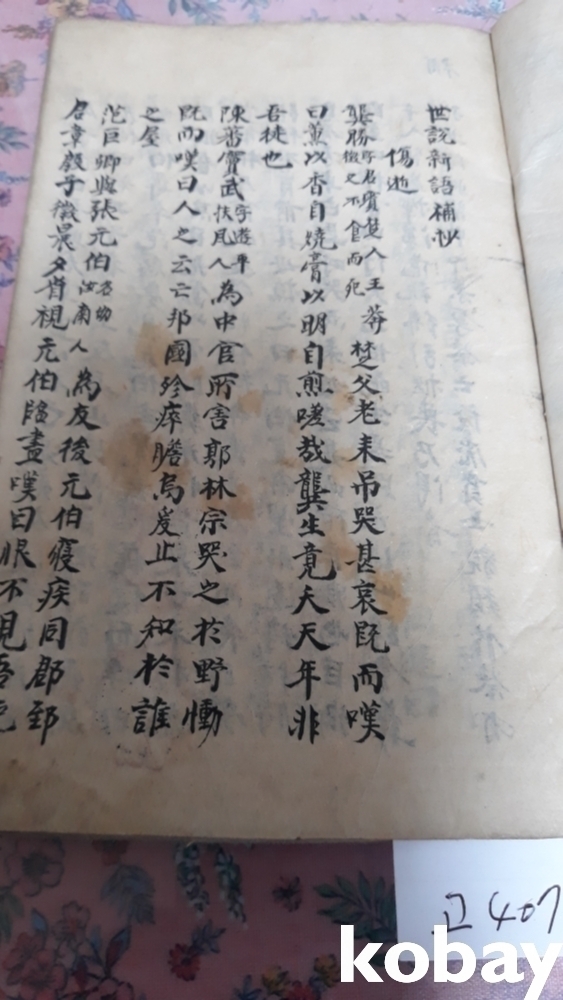 世說新語補抄
傷逝
龔勝字君賓楚人王莽
徵之不食而死楚父老来吊哭甚哀旣而嘆
曰薰以香自燒膏以明自煎嗟哉龔生竟夭天年非
吾徒也
陳蕃竇武字遊平
扶風人為中官所害郭林宗哭之於野慟
旣而嘆曰人之云亡邦國殄瘁瞻烏爰止不知於誰
之屋
范巨卿與張元伯名劭
汝南人為友後元伯寢疾同郡郅
君章殷子徵晨夕省視元伯臨盡嘆曰恨不見吾死
고 407
kobay